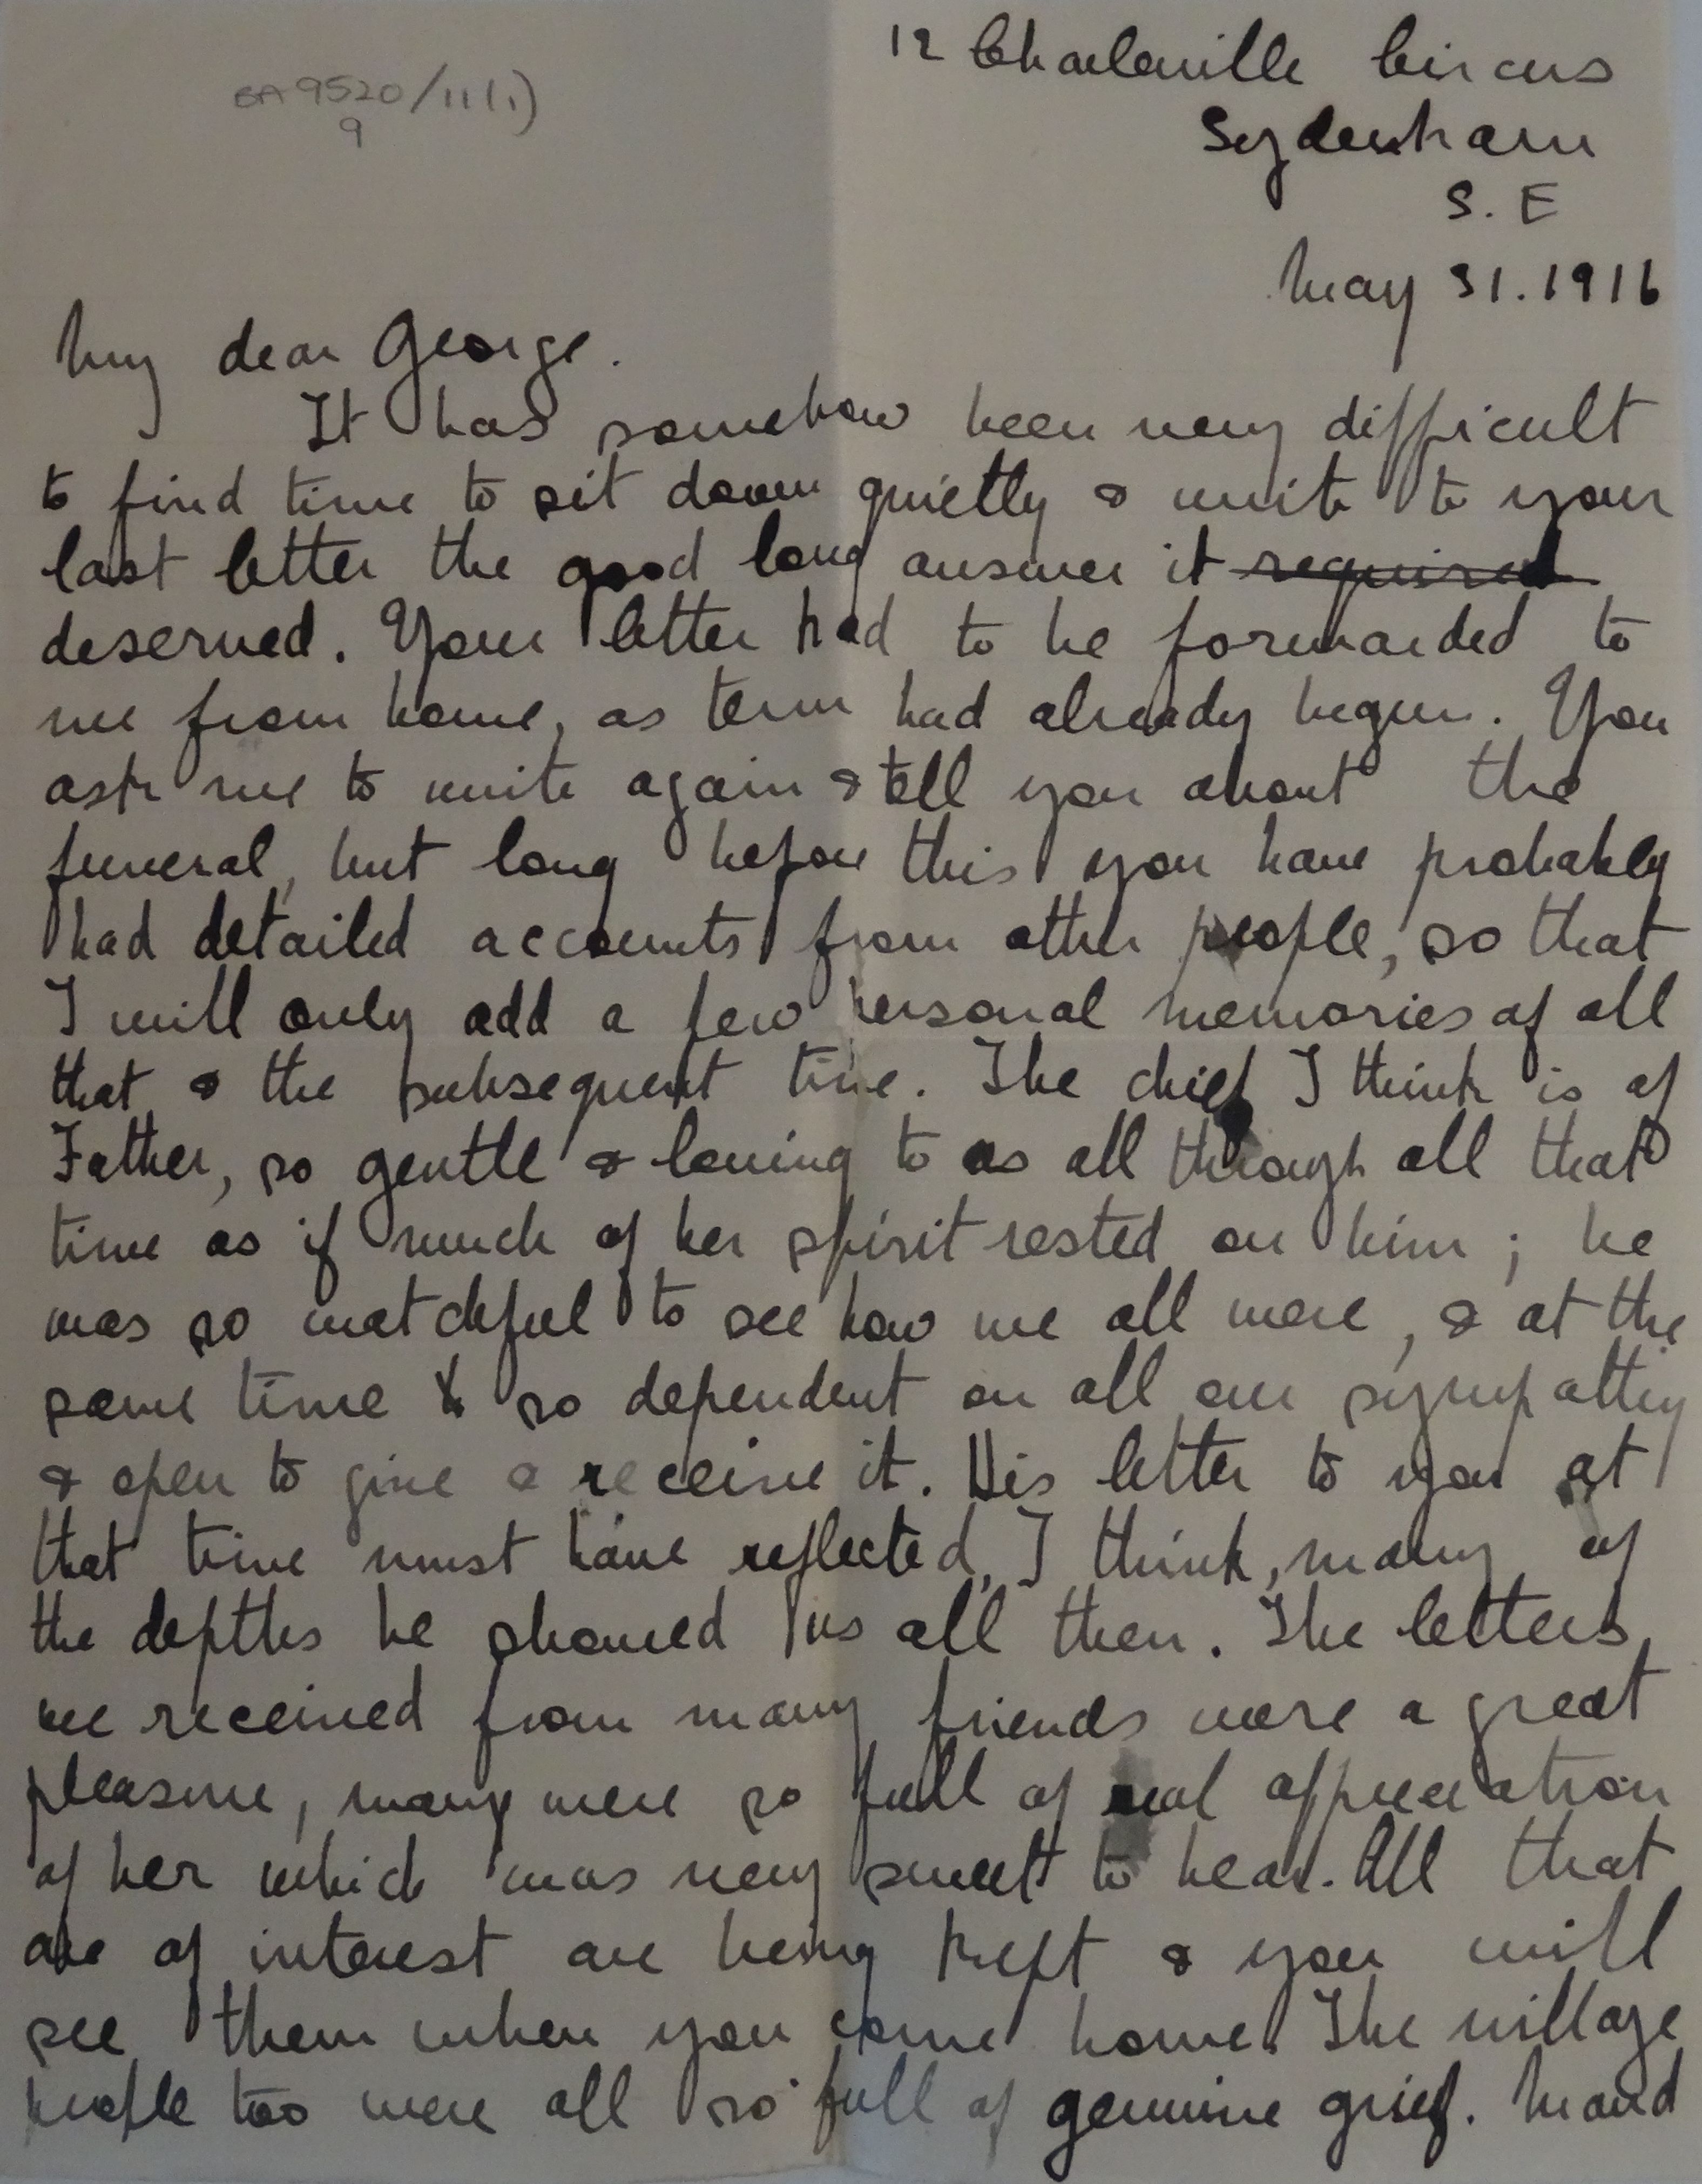 EA 9520/11(1)
9
12 Charleville Circus
Sydenham
S. E
May 31. 1916
My dear George.
It has somehow been very difficult
to find time to sit down quietly & write to your
last letter the good long answer it required
deserved. Your letter had to be forwarded to
me from home, as term had already begun. You
ask me to write again & tell you about the
funeral, but long before this you have probably
had detailed accounts from other people, so that
I will only add a few personal memories of all
that & the subsequent time. The chief I think is of
Father, so gentle & loving to us all through all that
time as if much of her spirit rested on him; he
was so watchful to see how we all were, & at the
same time & so dependent on all our sympathy
& open to give & receive it. His letter to you at
that time must have reflected, I think, many of
the depths he showed us all then. The letters
we received from many friends were a great
pleasure, many were so full of real appreciation
of her which was very sweet to hear. All that
are of interest are being kept & you will
see them when you come home. The village
people too were all so full of genuine grief. Maud